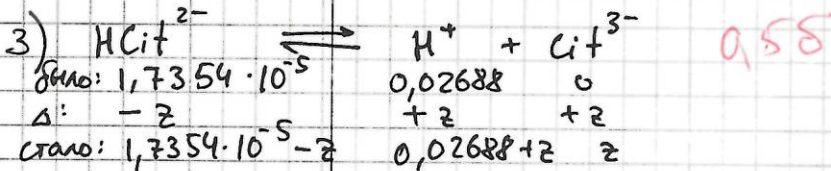 3) HCit²⁻ ⇌ H⁺ + Cit³⁻ 0,5б
было: 1,7354·10⁻⁵ 0,02688 0
Δ: - z + z + z
стало: 1,7354·10⁻⁵ - z 0,02688+z z